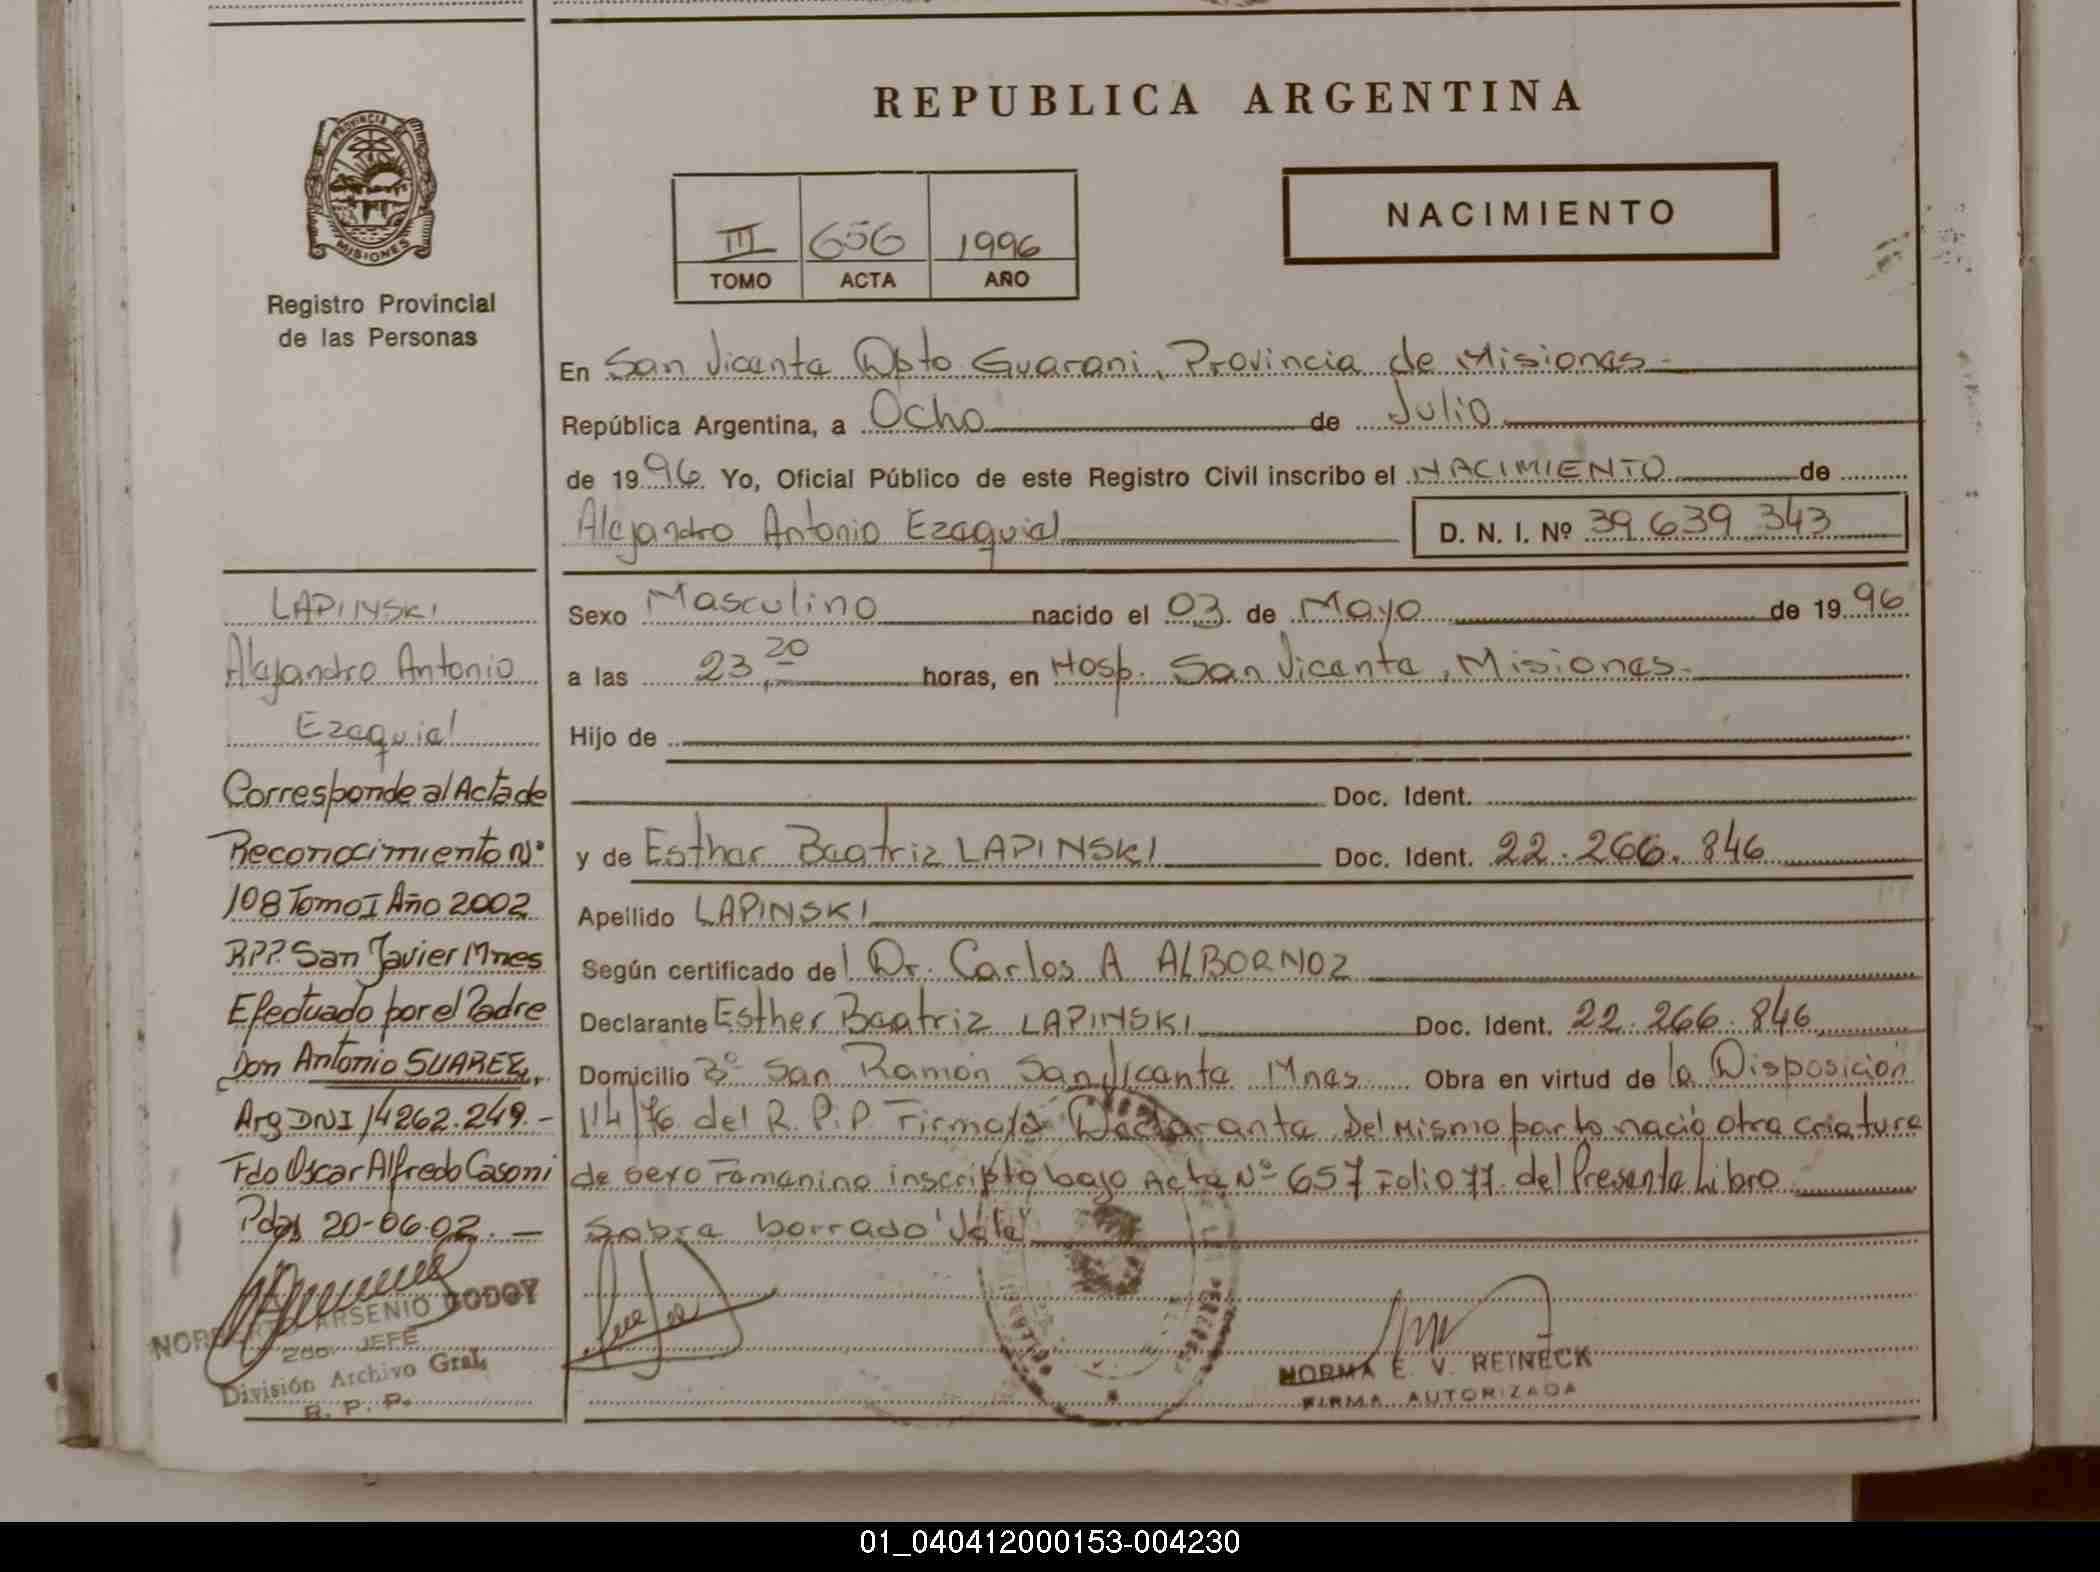 REPUBLICA ARGENTINA
PROVINCIA DE
MISIONES
Registro Provincial
de las Personas
III 656 1996
TOMO ACTA AÑO
NACIMIENTO
En San Vicente Dpto Guarani, Provincia de Misiones.-
República Argentina, a Ocho de Julio
de 1996 Yo, Oficial Público de este Registro Civil inscribo el NACIMIENTO de
Alejandro Antonio Ezequiel D. N. I. Nº 39 639 343
Sexo Masculino nacido el 03 de Mayo de 1996
a las 23,20 horas, en Hosp. San Vicente, Misiones.-
Hijo de
Doc. Ident.
y de Esther Beatriz LAPINSKI Doc. Ident. 22.266.846
Apellido LAPINSKI
Según certificado del Dr. Carlos A ALBORNOZ
Declarante Esther Beatriz LAPINSKI Doc. Ident. 22.266.846
Domicilio Bº San Ramón San Vicente Mnes Obra en virtud de la Disposición
114/76 del R.P.P. Firma la Declarante Del Mismo parto nació otra criatura
de sexo Femenino inscripto bajo Acta Nº 657 Folio 77 del Presente Libro
Sobre borrado "Vale"
NORMA E. V. REINECK
FIRMA AUTORIZADA
LAPINSKI
Alejandro Antonio
Ezequiel
Corresponde al Acta de
Reconocimiento Nº
108 Tomo I Año 2002
RPP. San Javier Mnes
Efectuado por el Padre
Don Antonio SUAREZ,
Arg DNI 14262.249.-
Fdo Oscar Alfredo Casoni
Pdas 20-06-02.-
NORBERTO ARSENIO GODOY
2do. JEFE
División Archivo Gral.
R. P. P.
01_040412000153-004230